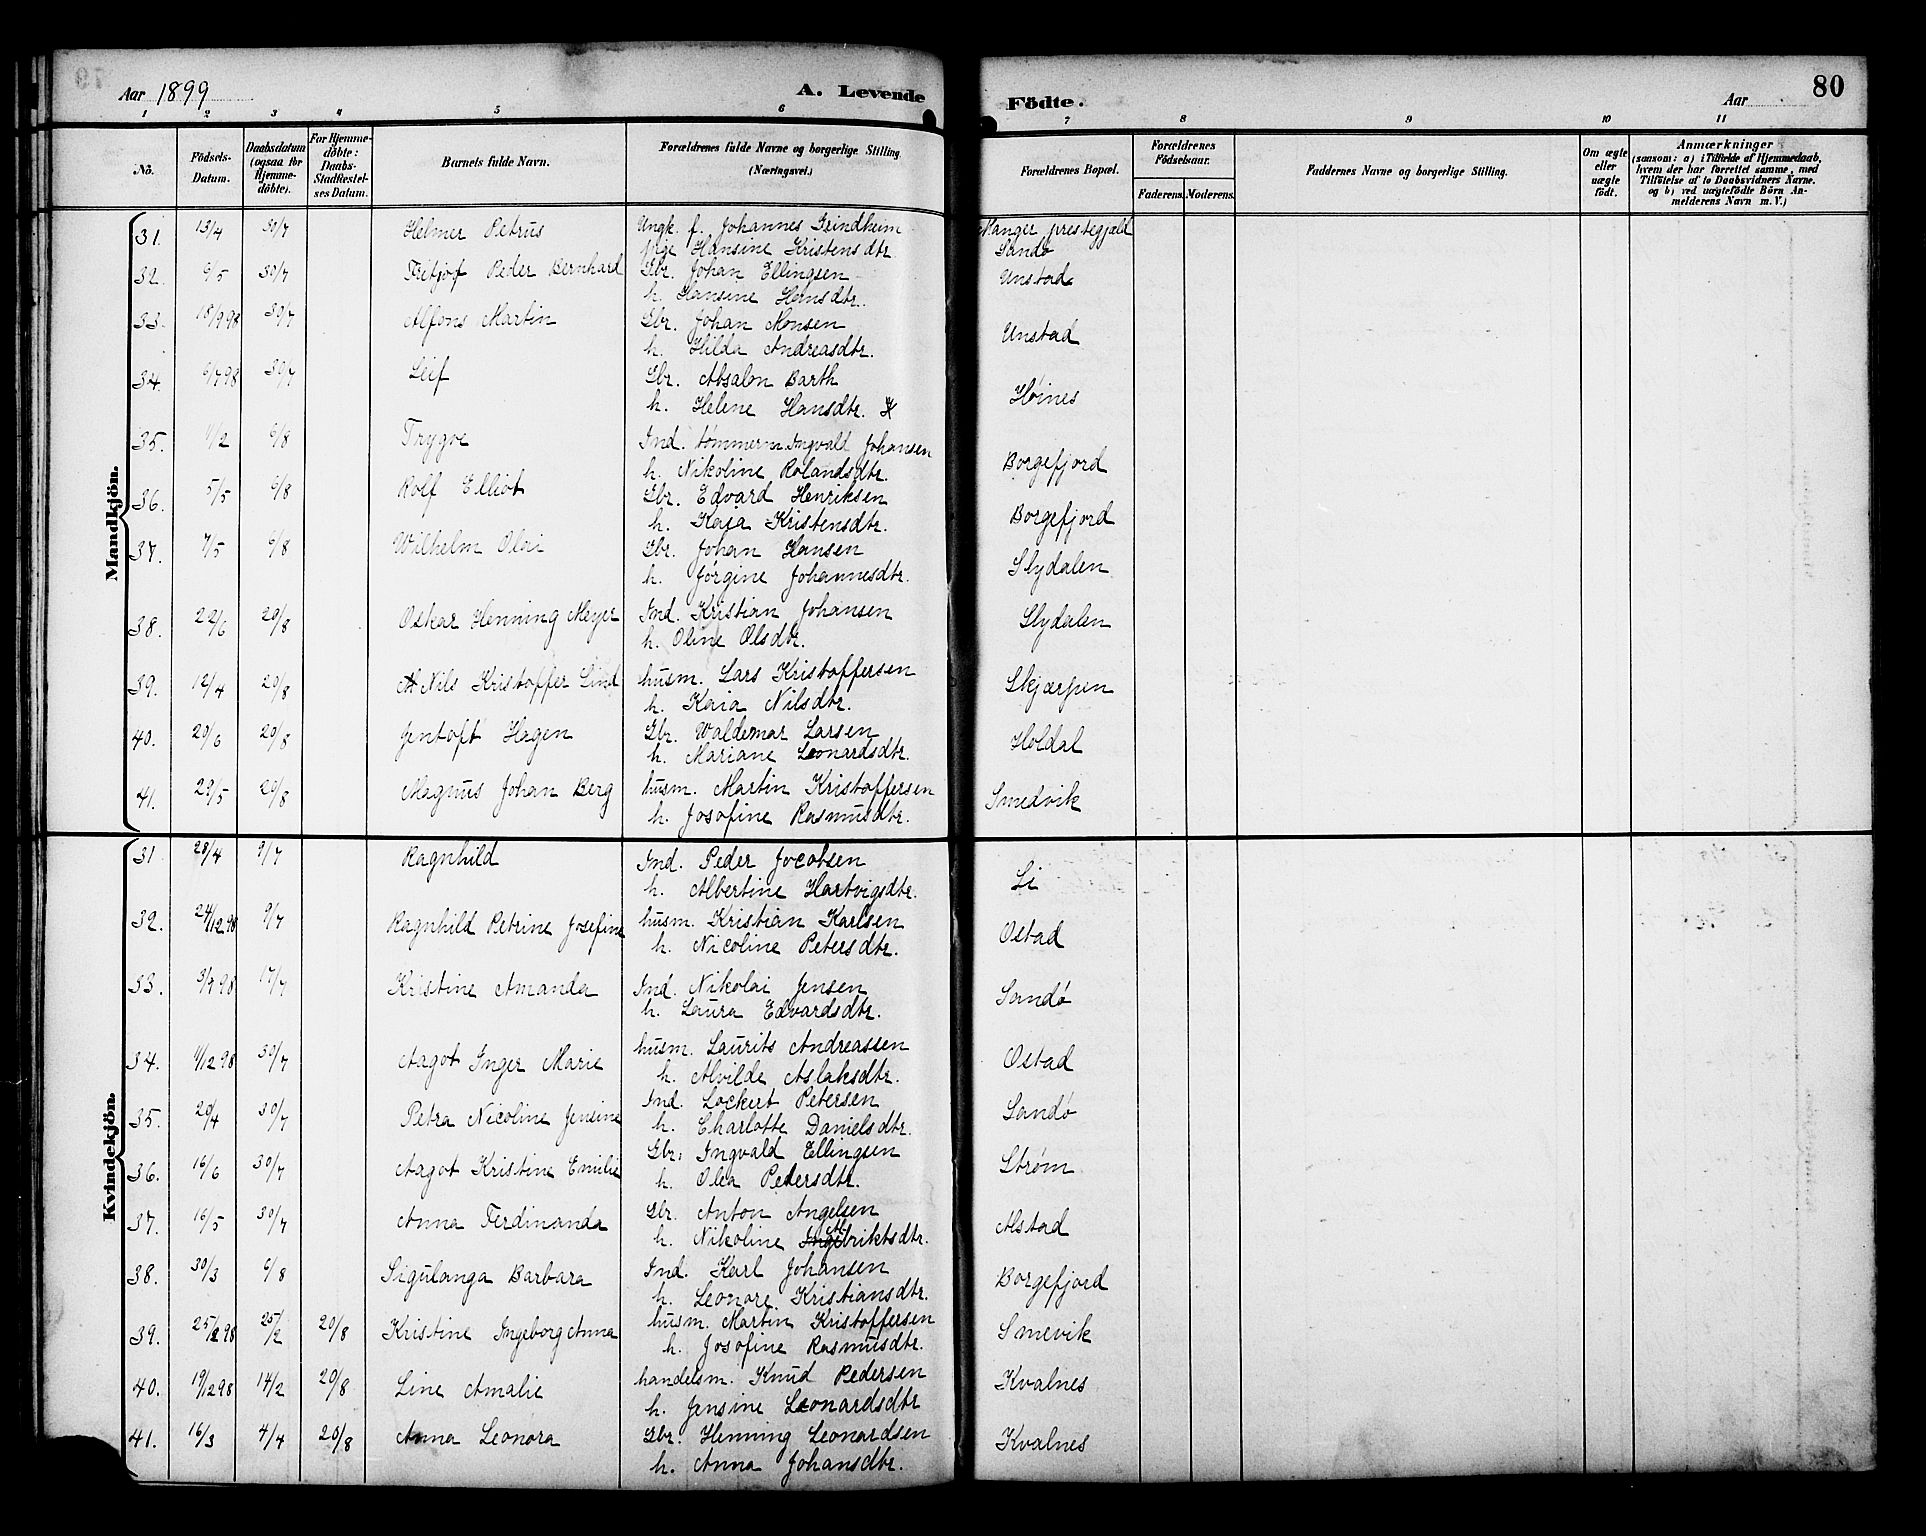 Aar 1899 A. Levende Födte. Aar 80
1 2 3 4 5 6 7 8 9 10 11
No. Födsels-Datum. Daabsdatum (ogsaa for Hjemmedöbte). For Hjemmedöbte: Daabs-Stadfæstelses Datum. Barnets fulde Navn. Forældrenes fulde Navne og borgerlige Stilling. (Næringsvei.) Forældrenes Bopæl. Forældrenes Födselsaar. Faderens. Moderens. Faddernes Navne og borgerlige Stilling. Om ægte eller uægte födt. Anmærkninger (saasom: a) i Tilfælde af Hjemmedaab, hvem der har forrettet samme, med Tilföielse af to Daabsvidners Navne, og b) ved uægtefödte Börn Anmelderens Navn m. V.)
Mandkjön.
31. 13/4 30/7 Helmer Petrus Ungk. f. Johannes Grindheim prestegjæld
pige Hansine Kristensdtr Sandö
32. 6/5 30/7 Peder Bernhard Gbr. Johan Ellingsen Unstad
h. Hansine Hansdtr.
33. 18/9 98 30/7 Alfons Martin Gbr. Johan Monsen Unstad
h. Hilda Andreasdtr.
34. 6/7 98 30/7 Leif Gbr. Absalon Barth Høines
h. Helene Hansdtr.
35. 4/2 6/8 Trygve Ind. tømmerm. Ingvald Johansen Borgefjord
h. Nikoline Rolandsdtr.
36. 5/5 6/8 Rolf Elliot Gbr. Edvard Henriksen Borgefjord
h. Kaja Kristensdtr.
37. 7/5 6/8 Wilhelm Olai Gbr. Johan Hansen Slydalen
h. Jörgine Johannesdtr.
38. 22/6 20/8 Oskar Henning Meyer Ind. Kristian Johansen Slydalen
h. Oline Olsdtr.
39. 12/4 20/8 Nils Kristoffer Lind husm. Lars Kristoffersen Skjærpen
h. Kaia Nilsdtr.
40. 20/6 20/8 Jentoft Hagen Gbr. Waldemar Larsen Holdal
h. Mariane Leonardsdtr.
41. 29/5 20/8 Magnus Johan Berg husm. Martin Kristoffersen Smedvik
h. Josofine Rasmusdtr.
Kvindekjön.
31 28/4 9/7 Ragnhild Ind. Peder Jocobsen Li
h. Albertine Hartvigsdtr.
32. 24/12 98 9/7 Ragnhild Petrine Josefine husm. Kristian Karlsen Ostad
h. Nicoline Petersdtr.
33. 98 17/7 Kristine Amanda Ind. Nikolai Jensen Sandö
h. Laura Edvardsdtr.
34. 4/12 98 30/7 Aagot Inger Marie husm. Laurits Andreassen Ostad
h. Alvilde Aslaksdtr.
35. 20/4 30/7 Petra Nicoline Jensine Ind. Lockert Petersen Sandö
h. Charlotte Danielsdtr.
36. 16/6 30/7 Aagot Kristine Emilie Gbr. Ingvald Ellingsen Strøm
h. Olea Pedersdtr.
37. 16/5 30/7 Anna Ferdinanda Gbr. Anton Angelsen Alstad
h. Nikoline
38. 30/3 6/8 Sigulanga Barbara Ind. Karl Johansen Borgefjord
h. Leonore Kristiansdtr.
39. 98 25/2 20/8 Kristine Ingeborg Anna husm. Martin Kristoffersen Smevik
h. Josofine Rasmusdtr.
40. 19/12 98 14/2 20/8 Line Amalie handelsm. Knud Pedersen Kvalnes
h. Jensine Leonardsdtr
41. 16/3 4/4 20/8 Anna Leonora Gbr. Henning Leonardsen Kvalnes
h. Anna Johansdtr.